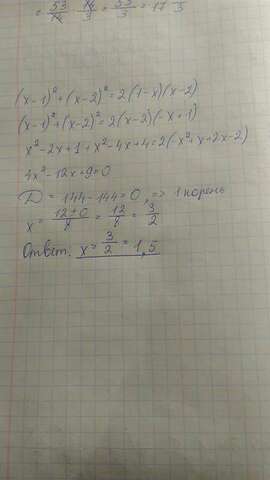 = 53/14 · 14/3 = 53/3 = 17
(x-1)²+(x-2)²=2(1-x)(x-2)
(x-1)²+(x-2)²=2(x-2)(-x+1)
x²-2x+1+x²-4x+4=2(-x²+x+2x-2)
4x²-12x+9=0
D=144-144=0, => 1 корень
x=12±0/8=12/8=3/2
Ответ. x=3/2=1,5